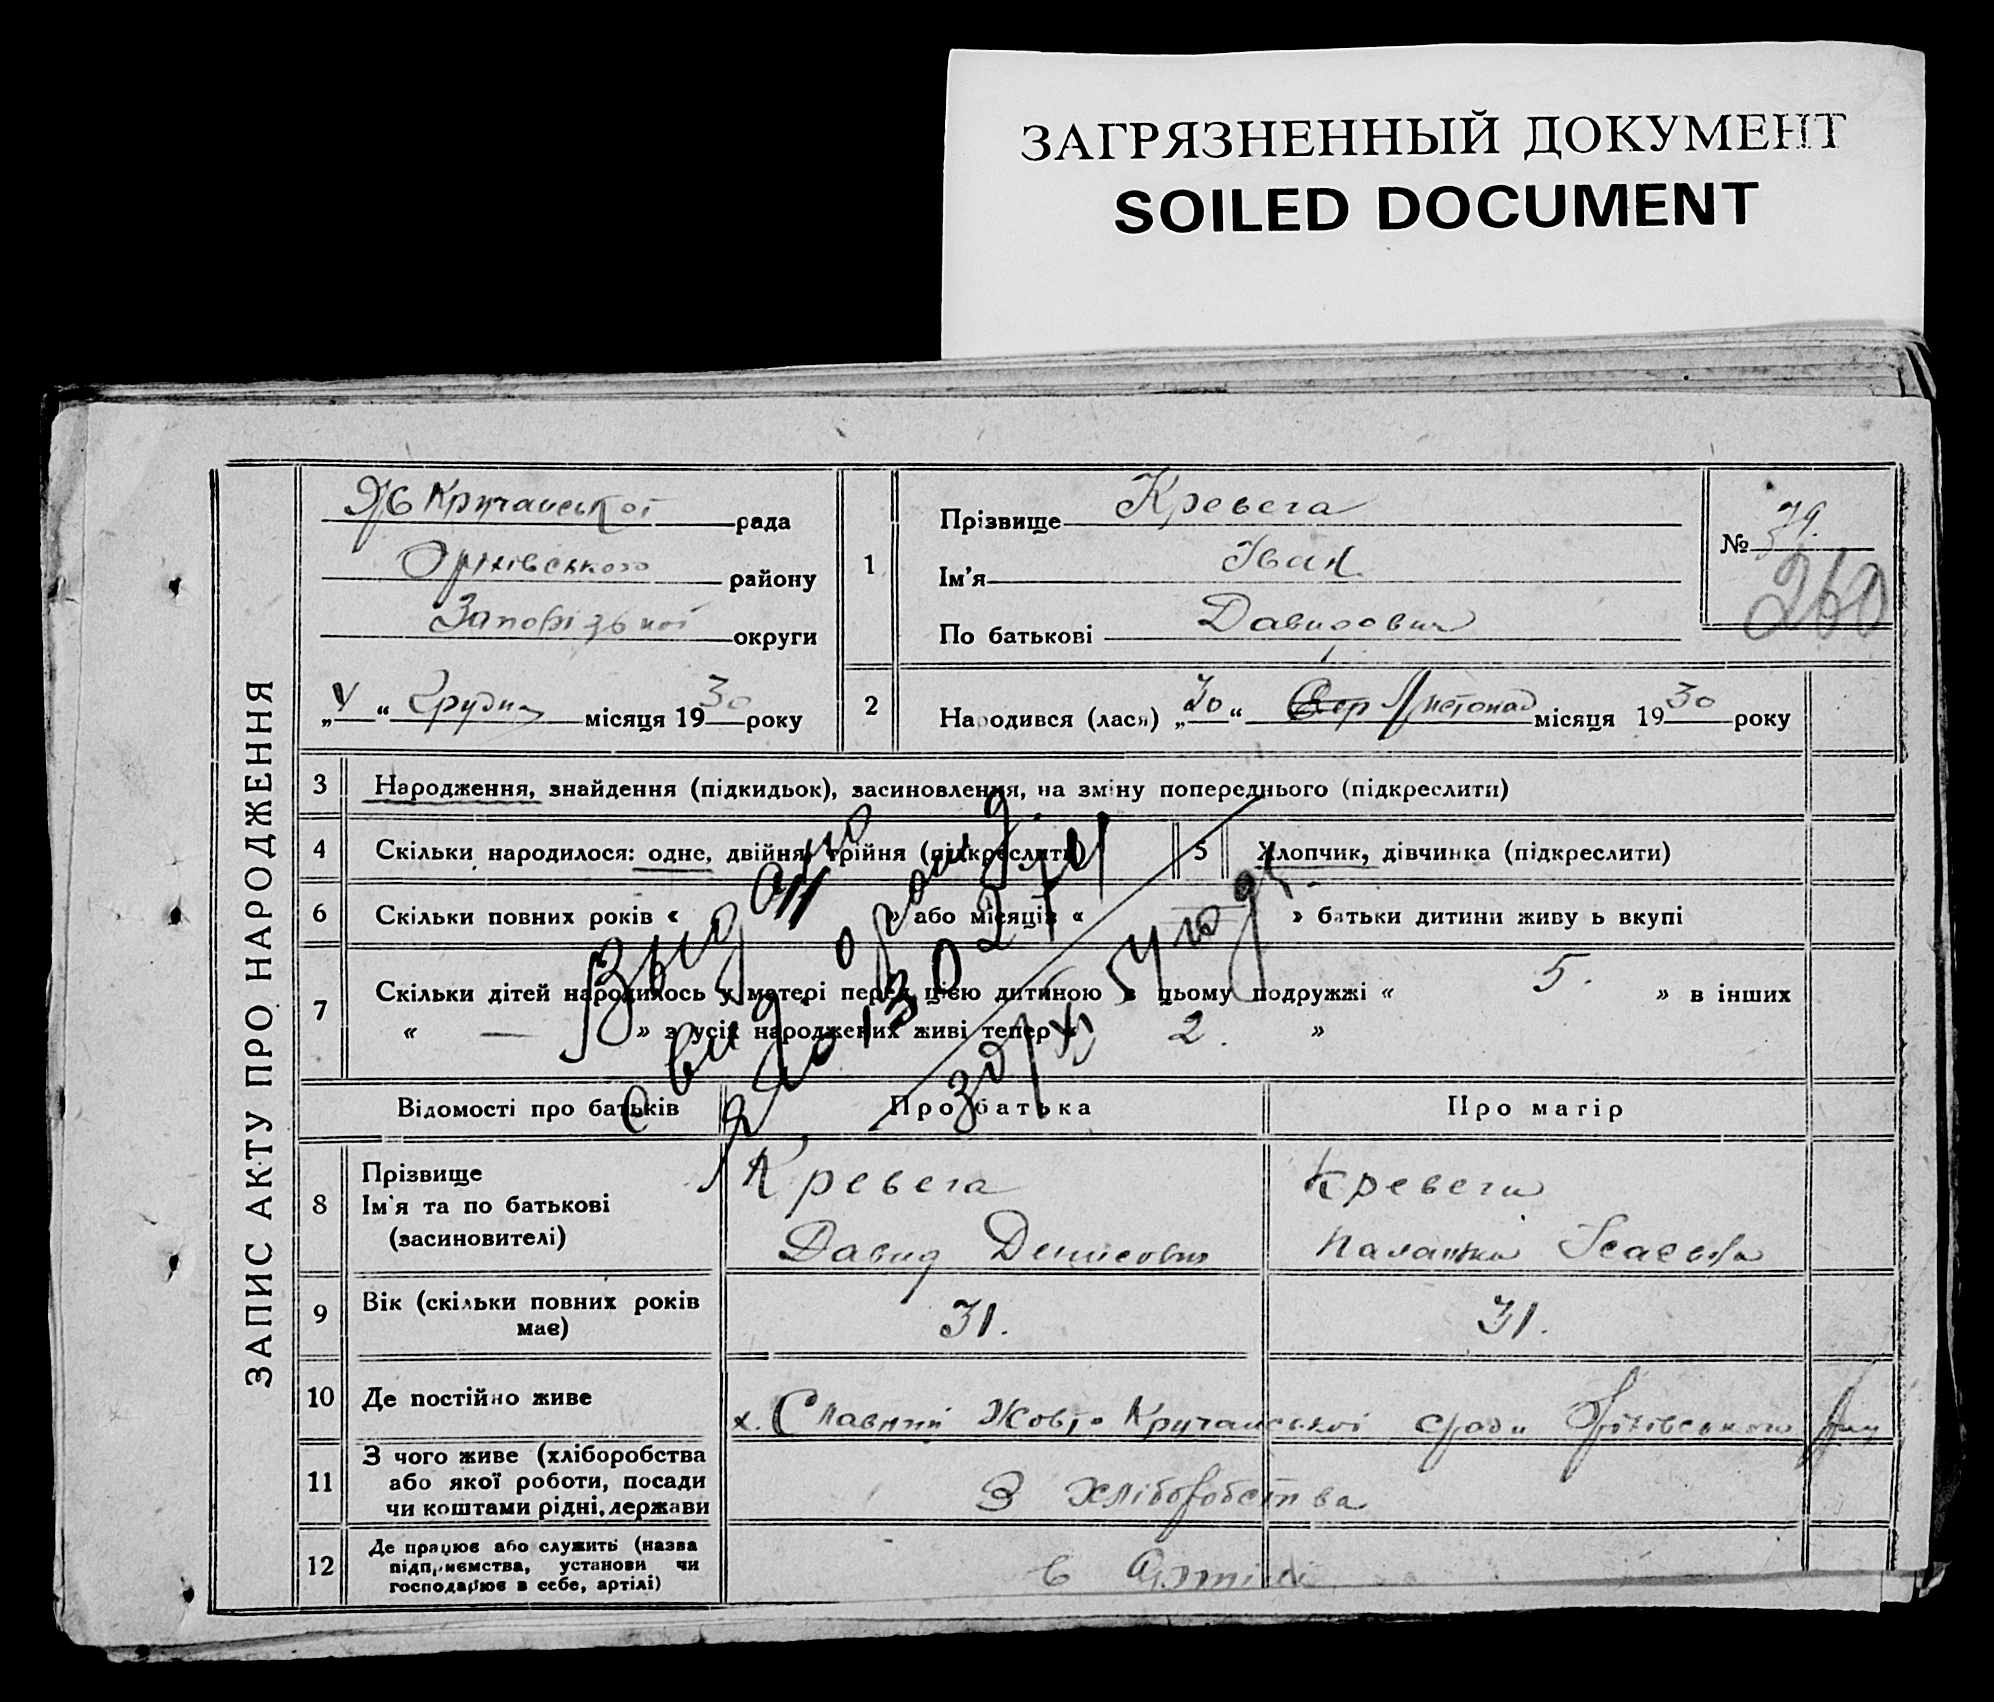 ЗАГРЯЗНЕННЫЙ ДОКУМЕНТ
SOILED DOCUMENT
ЗАПИС АКТУ ПРО НАРОДЖЕННЯ
Кручанської рада
Оріхівського району
Запорізької округи
„V“ Грудня місяця 1930 року
1
Прізвище Кревега
Ім'я Іван
По батькові Давидович
№ 79.
260
2
Народився (лася) „30“ Листопад місяця 1930 року
3 Народження, знайдення (підкидьок), засиновлення, на зміну попереднього (підкреслити)
4 Скільки народилося: одне, двійня, трійня (підкреслити)
5 Хлопчик, дівчинка (підкреслити)
6 Скільки повних років « » або місяців « » батьки дитини живуть вкупі
7 Скільки дітей народилось у матері перед цією дитиною в цьому подружжі « 5. » в інших
« — » з усіх народжених живі тепер « 2. »
Выдано
свид о рожд.
Відомості про батьків
Про батька
Про матір
8 Прізвище
Ім'я та по батькові
(засиновителі)
Кревега
Давид Денисович
Кревега
Палажка Ісаєвна
9 Вік (скільки повних років має)
31.
31.
10 Де постійно живе
х. Славний Жовто Кручанської с/ради Оріхівського р/ну
11 З чого живе (хліборобства
або якої роботи, посади
чи коштами рідні, держави
З хліборобства
12 Де працює або служить (назва
підприємства, установи чи
господарює в себе, артілі)
в Артілі